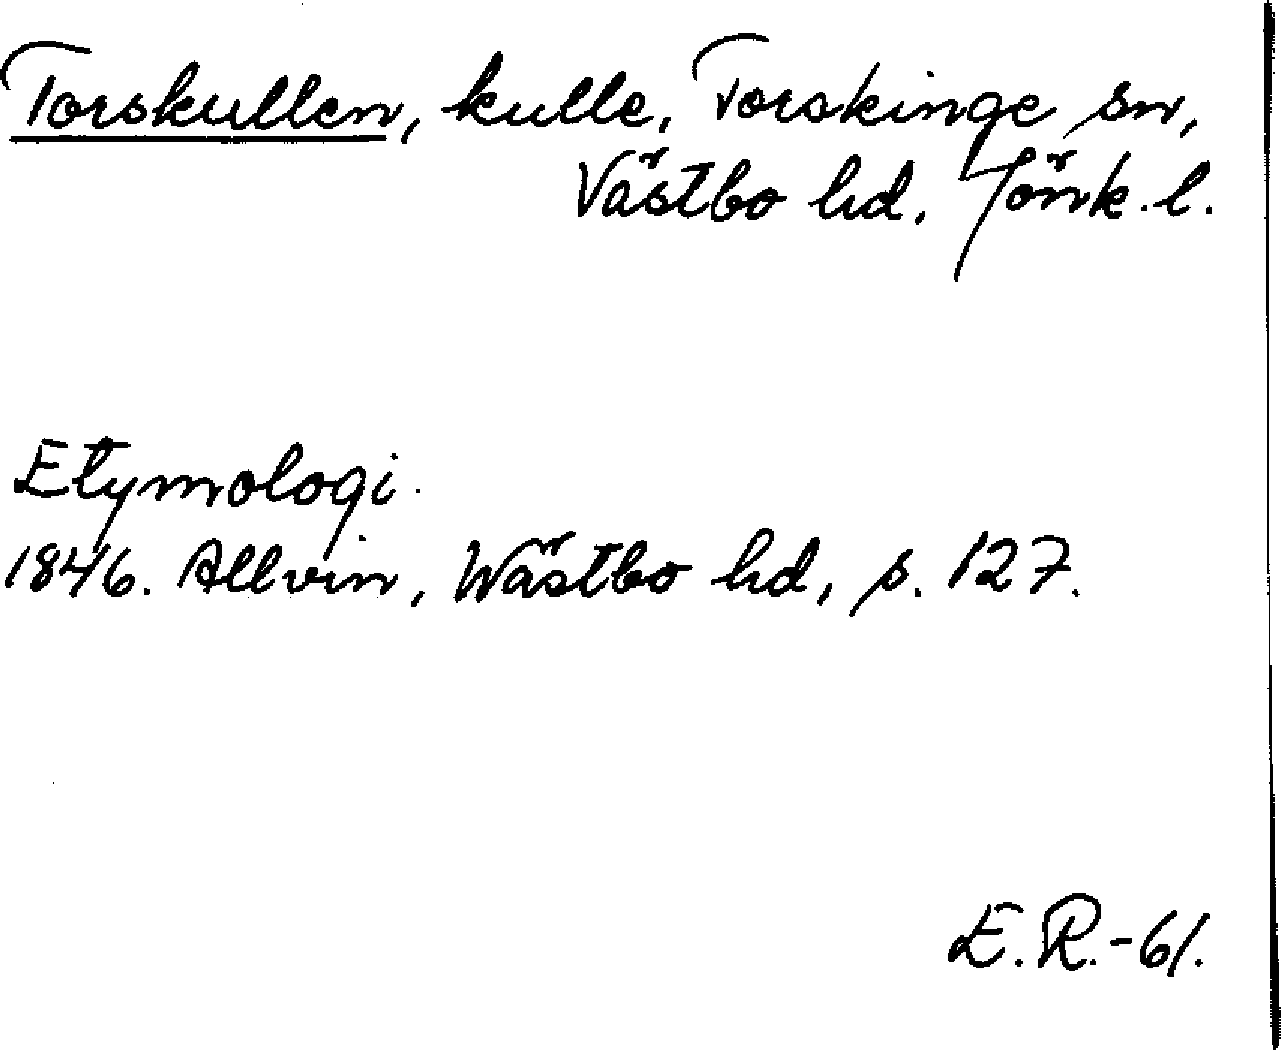 Torskullen, kulle, Torskinge sn,
Västbo hd, Jönk. l.
Etymologi.
1846. Allvin, Wästbo hd, s. 127.
E.R.-61.